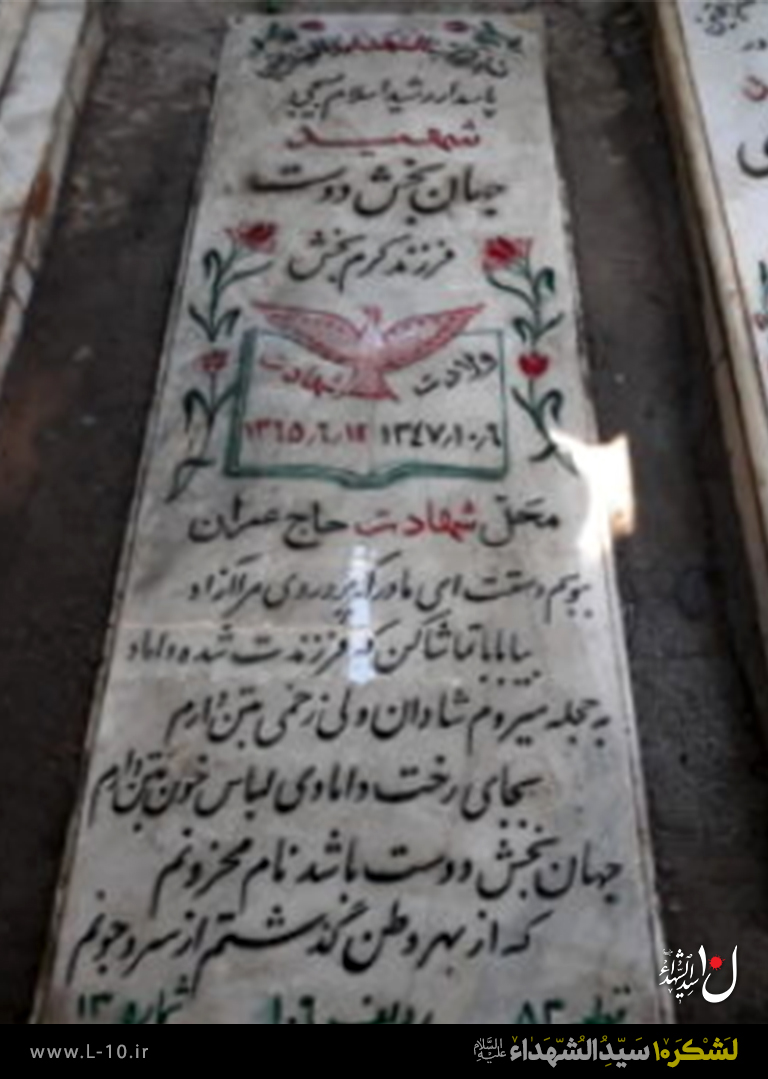 پاسدار رشید اسلام بسیجی
شهید
جهان بخش دوست
فرزند کرم بخش
ولادت شهادت
۱۳۴۷٫۱۰٫۶ ۱۳۶۵٫۶٫۱۲
محل شهادت حاج عمران
ببوسم دستت ای مادر که پروردی مرا آزاد
بیا بابا تماشا کن که فرزندت شده داماد
به حجله میروم شادان ولی زخمی بتن دارم
بجای رخت دامادی لباس خون بتن دارم
جهان بخش دوست باشد نام محزونم
که از بهر وطن گذشتم از سر و جونم
ردیف شماره ۱۳
لشکر ۱۰ سیدالشهداء علیه السلام
www.L-10.ir